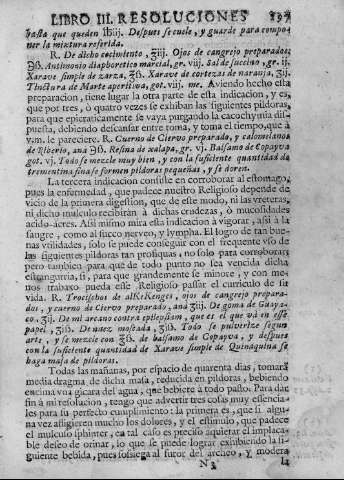 LIBRO III. RESOLUCIONES 197
hasta que queden ℔iij. Despues se cuele, y guarde para compo-
ner la mixtura referida.
R. De dicho cocimiento, ʒiij. Ojos de cangrejo preparados,
Ʒß. Antimonio diaphoretico marcial, gr. viij. Sal de succino, gr. ij.
Xarave simple de zarza, ℥ß. Xarave de cortezas de naranja, ʒij.
Tinctura de Marte aperitiva, got. viij. me. Aviendo hecho esta
preparacion, tiene lugar la otra parte de esta indicacion, y es,
que por tres, ò quatro vezes se exhiban las siguientes pildoras,
para que epicraticamente se vaya purgando la cacochymia dis-
puesta, debiendo descansar entre toma, y toma el tiempo, que à
vm. le pareciere. R. Cuerno de Ciervo preparado, y calomelanos
de Riberio, ana ℈ß. Resina de xalapa, gr. vj. Balsamo de Copayva
got. vj. Todo se mezcle muy bien, y con la suficiente quantidad de
trementina sinа se formen pildoras pequeñas, y se doren.
La tercera indicacion consiste en corroborar al estomago,
pues la enfermedad, que padece nuestro Religioso depende de
vicio de la primera digestion, que de este modo, ni las vreteras,
ni dicho musculo recibiràn à dichas crudezas, ò mucosidades
acido-acres. Assi mismo mira esta indicacion à vigorar, assi à la
sangre, como al succo nerveo, y lympha. El logro de tan bue-
nas vtilidades, solo se puede conseguir con el frequente vso de
las siguientes pildoras tan profiquas, no solo para corroborar,
pero tambien para que de todo punto no sea vencida dicha
estangurria, si, para que grandemente se minore, y con me-
nos trabaxo pueda este Religioso passar el curriculo de su
vida. R. Trociscos de alkekenges, ojos de cangrejo prepara-
dos, y cuerno de Ciervo preparado, ana ʒiij. De goma de Guaya-
co, ʒij. De mi arcano contra epilepsiam, que es el que và en esse
papel, ʒß. De nuez moscada, ʒß. Todo se pulverize segun
arte, y se mezcle con ʒß. de balsamo de Copayva, y despues
con la suficiente quantidad de Xarave simple de Quinaquina se
haga masa de pildoras.
Todas las mañanas, por espacio de quarenta dias, tomarà
media dragma de dicha masa, reducida en pildoras, bebiendo
encima vna gicara del agua, que bebiere à todo pasto. Para dar
fin à mi resolucion, tengo que advertir tres cosas muy essencia-
les para su perfecto cumplimiento: la primera es, que si algu-
na vez afligieren mucho los dolores, y el estimulo, que padece
el musculo sphinter, en tal caso es preciso aquietar el implaca-
ble deseo de orinar, lo que se puede lograr exhibiendo la si-
guiente bebida, pues sossiega al furor del archeo, y modera
N 3 la